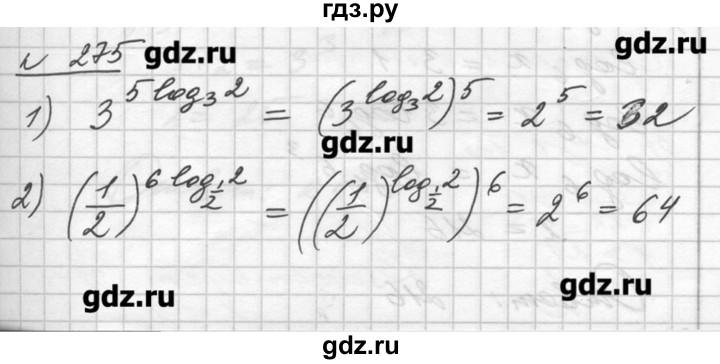 гдз.ру
gdz.ru
N 275 gdz.ru
1) 3^{5 log_3 2} = (3^{log_3 2})^5 = 2^5 = 32
gdz.ru
2) (1/2)^{6 log_{1/2} 2} = ((1/2)^{log_{1/2} 2})^6 = 2^6 = 64
gdz.ru
gdz.ru
gdz.ru